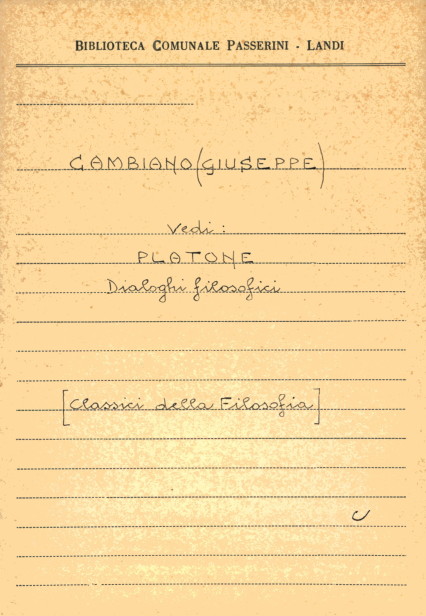 BIBLIOTECA COMUNALE PASSERINI - LANDI
CAMBIANO (GIUSEPPE)
Vedi:
PLATONE
Dialoghi filosofici
[Classici della Filosofia]
C